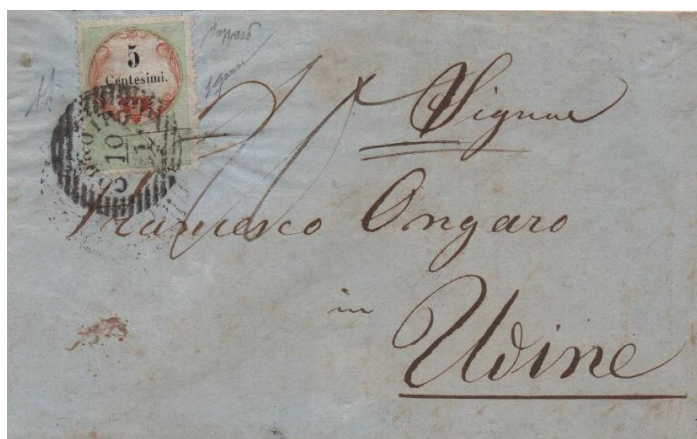 5
Centesimi.
CODROIPO
10
12
Signor
Francesco Ongaro
in
Udine